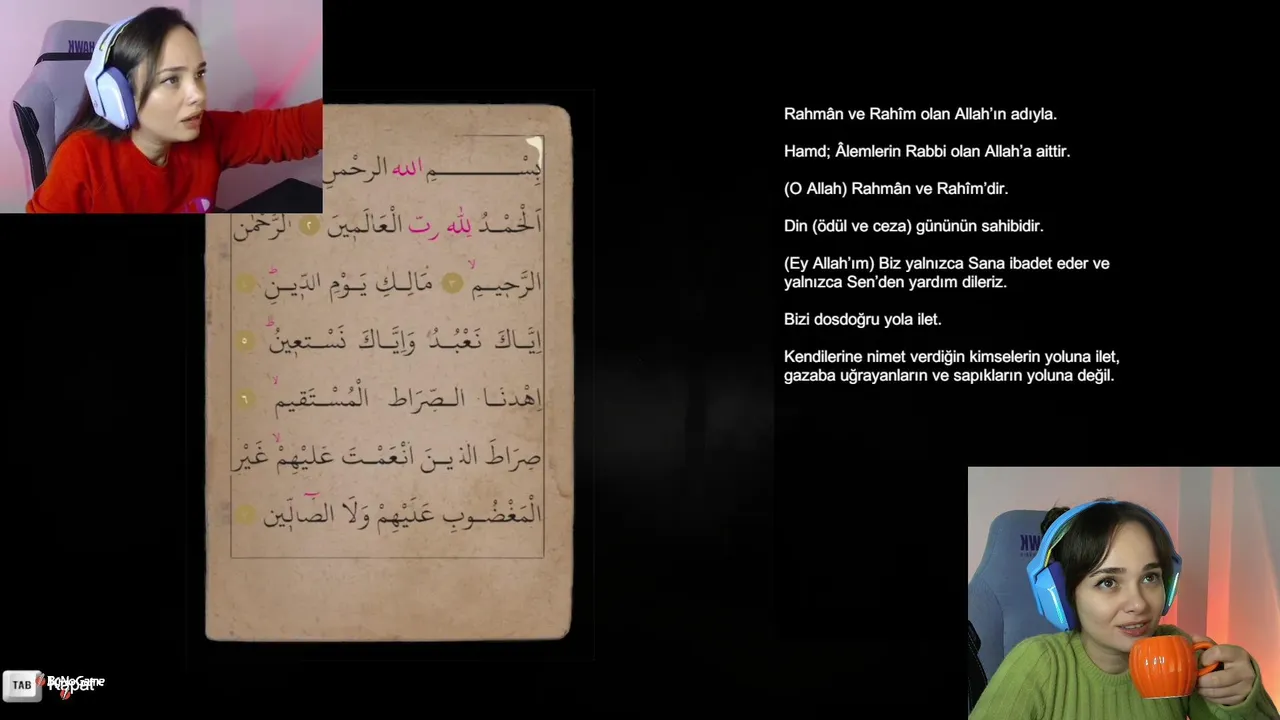 بِسْـــمِ الله الرحْمنِ
اَلْحَمْـدُ لِلّٰه ربّ الْعَالَمٖينَ ٢ الرَّحْمٰن
الرَّحٖيـمِ ٣ مَالِـكِ يَـوْمِ الدّٖيـنِ
اِيَّـاكَ نَعْبُـدُ وَاِيَّـاكَ نَسْـتَعٖينُ ٥
اِهْدنَـا الـصِّرَاط الْمُسْـتَقٖيم ٦
صِرَاطَ الذيـنَ انْعَمْـتَ عَليْهِمْ غَيْر
الْمَغْضُـوبِ عَلَيْهِمْ وَلَا الضالّٖين
Rahmân ve Rahîm olan Allah’ın adıyla.
Hamd; Âlemlerin Rabbi olan Allah’a aittir.
(O Allah) Rahmân ve Rahîm’dir.
Din (ödül ve ceza) gününün sahibidir.
(Ey Allah’ım) Biz yalnızca Sana ibadet eder ve
yalnızca Sen’den yardım dileriz.
Bizi dosdoğru yola ilet.
Kendilerine nimet verdiğin kimselerin yoluna ilet,
gazaba uğrayanların ve sapıkların yoluna değil.
TAB Kapat